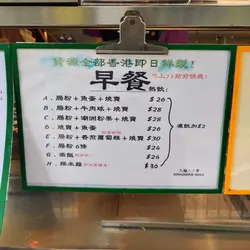 貨源全部香港即日鮮製！
早餐
熱飲：
A．腸粉＋魚蛋＋燒賣 $26
B．腸粉＋牛肉球＋燒賣 $28
C．腸粉＋潮洲粉果＋燒賣 $28
D．燒賣＋魚蛋 $26
E．腸粉＋香煎蘿蔔糕＋燒賣 $30
F．腸粉6條 $26
G．染飯 $26
H．糯米雞 $30
凍飲加$2